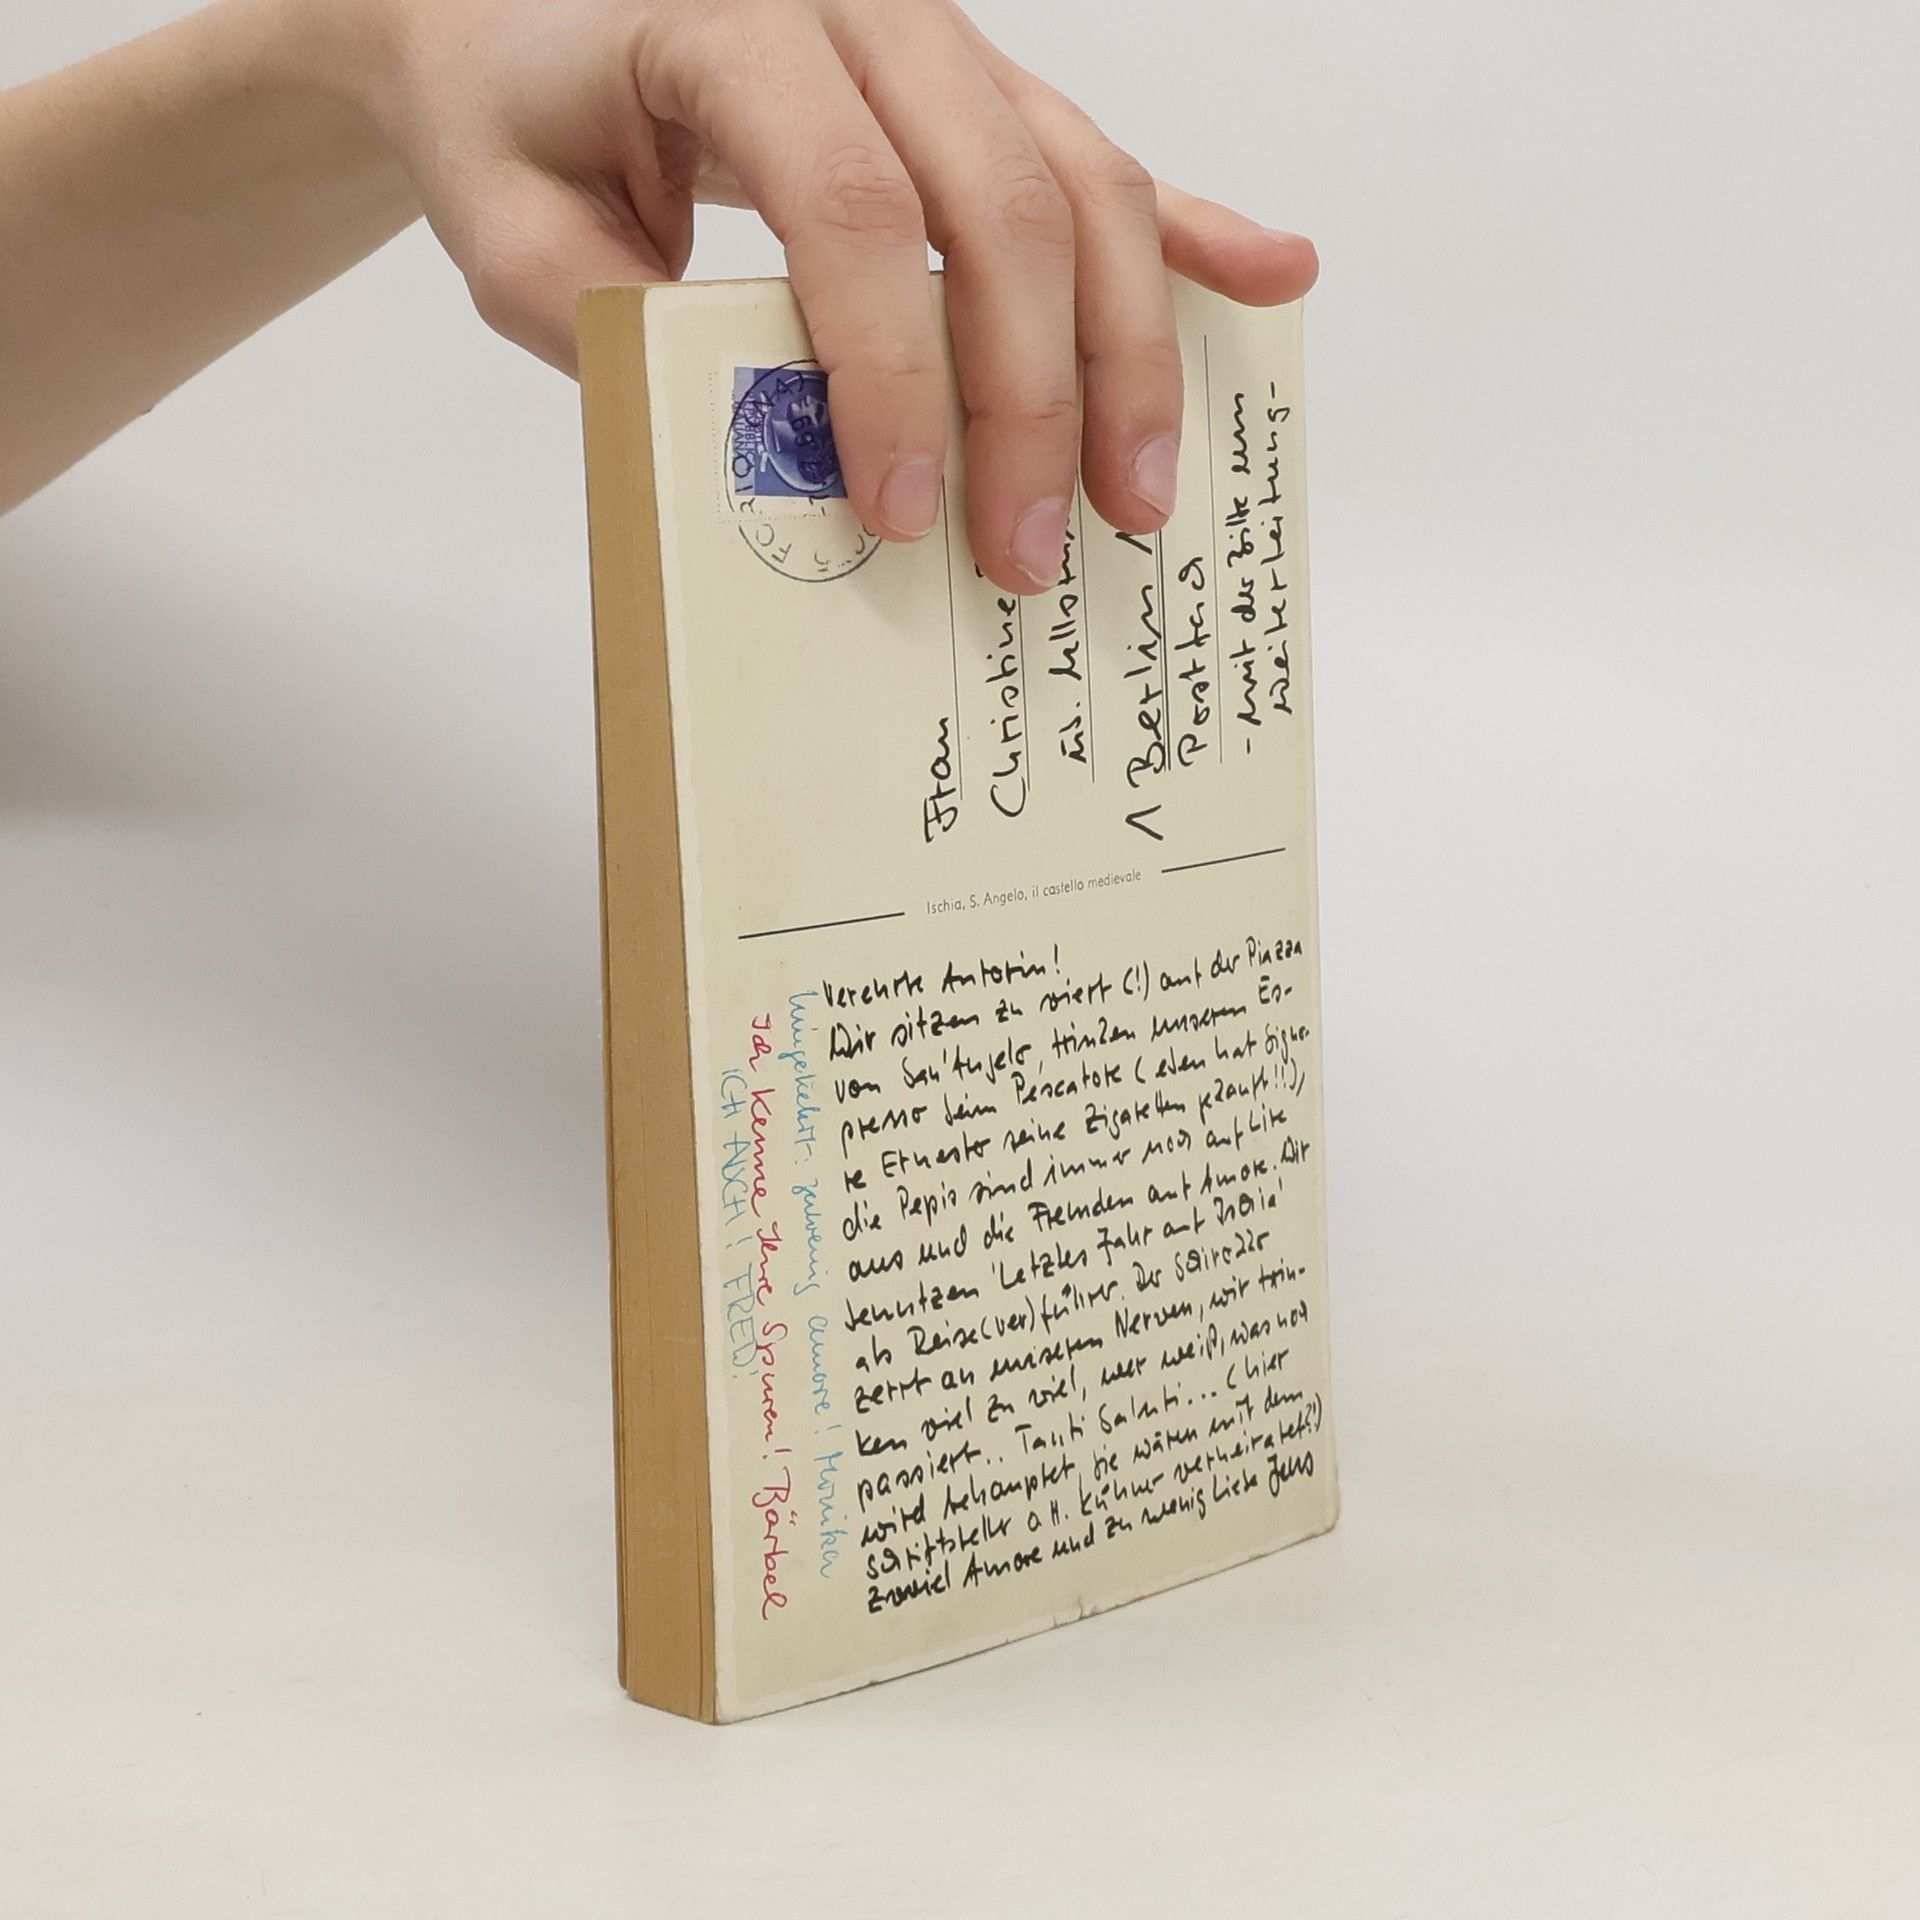 Frau
Christine
üb. Ullst
1 Berlin 1
Postfach
- mit der Bitte um
Weiterleitung -
Ischia, S. Angelo, il castello medievale
Verehrte Autorin!
Wir sitzen zu viert (!) auf der Piazza
von San'Angelo, trinken unseren Es-
presso beim Pescatore (eben hat Signo-
re Ernesto seine Zigaretten gekauft!!),
die Pepis sind immer noch auf Lire
aus und die Fremden auf Amore. Wir
benutzen 'Letztes Jahr auf Ischia'
als Reise(ver)führer. Der Schirokko
zerrt an unseren Nerven, wir trin-
ken viel zu viel, wer weiß, was noch
passiert.. Tanti Saluti... (hier
wird behauptet, Sie wären mit dem
Schriftsteller O.H. Kühner verheiratet?!)
Zuviel Amore und zu wenig Liebe Jens
Umgekehrt: zuwenig amore! Monika
Ich kenne Ihre Spuren! Bärbel
ICH AUCH! FRED!